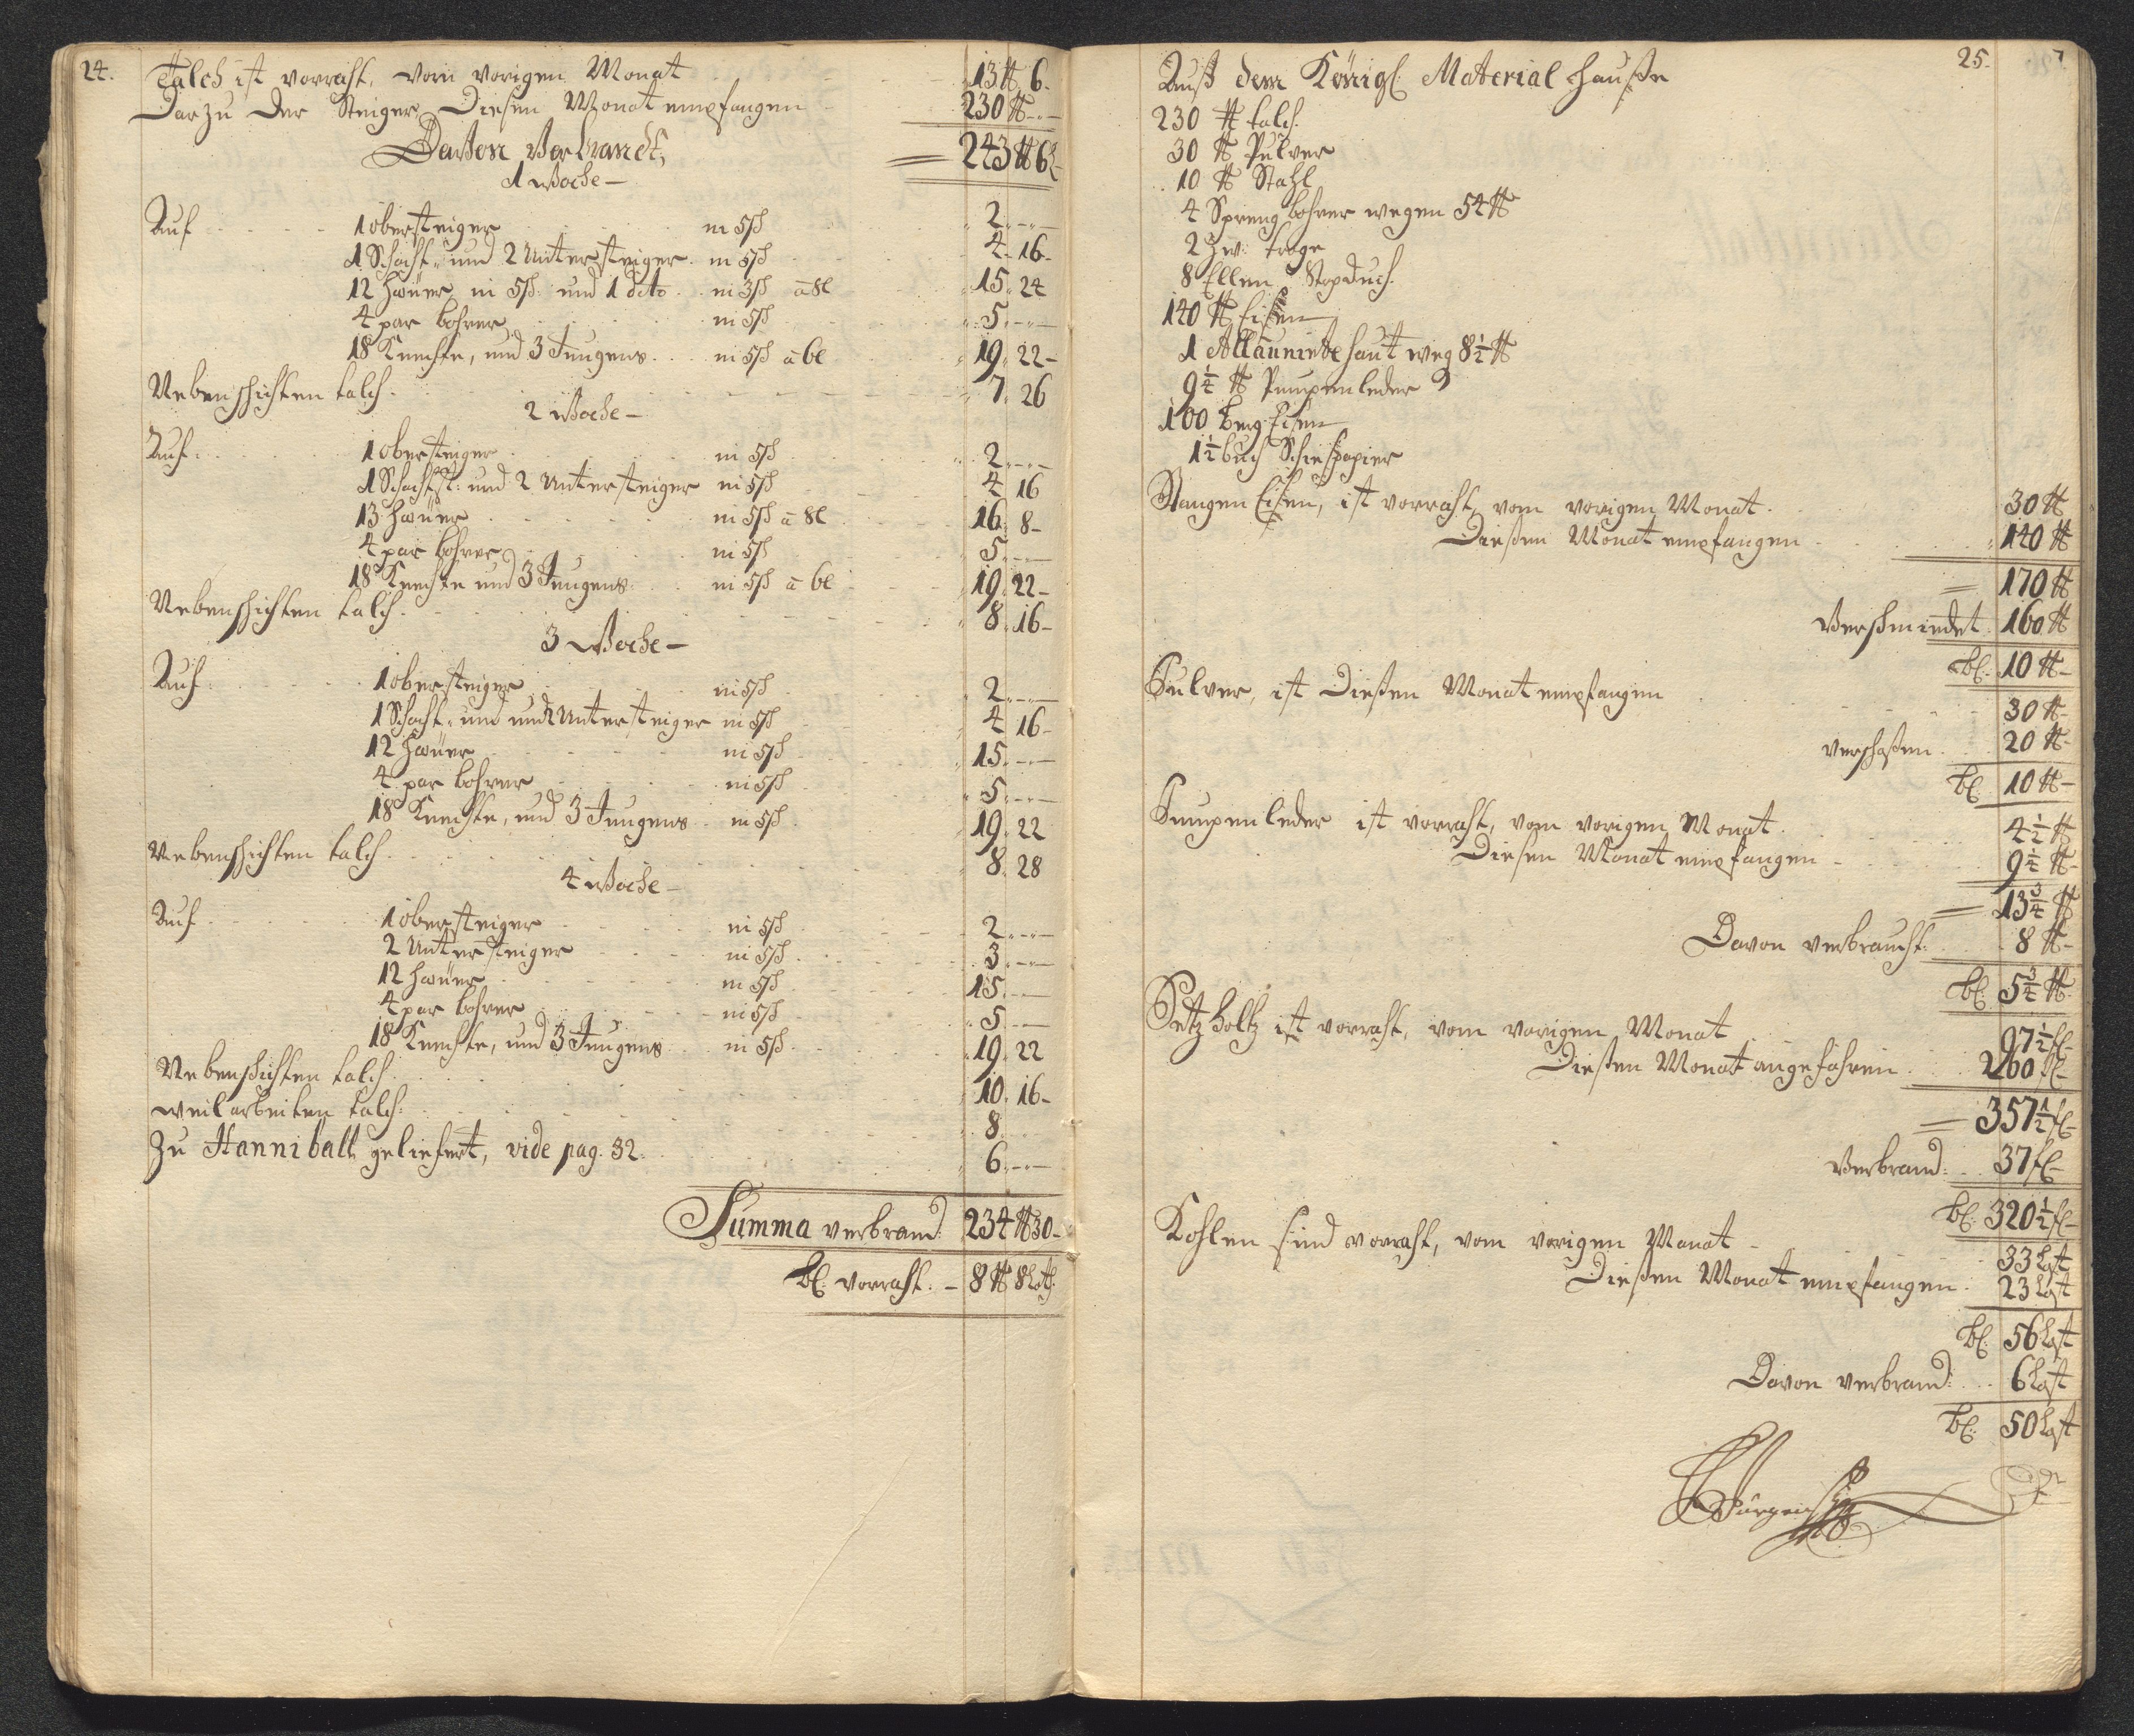 24.
Talch ist vorraht, vom vorigen Monat 13 ℔ 6.
Darzu der Steiger Diesen Monat empfangen 230 ℔ -.-
Davon Verbrandt, = 243 ℔ 6 l
1 Woche -
Auf 1 obersteiger in 5 ß 2. -.-
1 Schacht- und 2 Untersteiger in 5 ß 4. 16-
12 Häuer in 5 ß und 1 dito in 3 ß a 8 l 15. 24
4 par bohrer in 5 ß 5. -.-
18 Knechte, und 3 Jungens in 5 ß a 6 l 19. 22-
Nebenschichten talch 7. 26
2 Woche -
Auf 1 obersteiger in 5 ß 2. -.-
1 Schachtst: und 2 Untersteiger in 5 ß 4 16
13 Häuer in 5 ß a 8 l 16. 8-
4 par bohrer in 5 ß 5. -.-
18 Knechte und 3 Jungens in 5 ß a 6 l 19. 22-
Nebenschichten talch 8. 16-
3 Woche -
Auf 1 obersteiger in 5 ß 2. -.-
1 Schacht- und und 2 Untersteiger in 5 ß 4 16-
12 Häuer in 5 ß 15. -.-
4 par bohrer in 5 ß 5. -.-
18 Knechte, und 3 Jungens in 5 ß 19. 22
Nebenschichten talch 8. 28
4 Woche -
Auf 1 obersteiger in 5 ß 2. -.-
2 Untersteiger in 5 ß 3. -.-
12 Häuer in 5 ß 15. -.-
4 par bohrer in 5 ß 5. -.-
18 Knechte, und 3 Jungens in 5 ß 19. 22
Nebenschichten talch 10. 16-
weilarbeiten talch: 8.
Zu Hanniball geliefert, vide pag. 32. 6. -.-
Summa verbrand: 234 ℔ 30-
bl: vorraht. - 8 ℔ 8 Loth
25.
Auß dem Königl: Material Hauße
230 ℔ talch.
30 ℔ Pulver
10 ℔ Stahl
4 Sprengbohrer wegen 54 ℔
2 troge
8 Ellen
140 ℔ Eisen
1 haut weg 8½ ℔
9¼ ℔ Pumpenleder
100 berg Eisen
1½ buch Schiespapier
Stangen Eisen, ist vorraht, vom vorigen Monat 30 ℔
Diesen Monat empfangen 140 ℔
= 170 ℔
Verschmiedet 160 ℔
bl: 10 ℔-
Pulver, ist Diesen Monat empfangen 30 ℔-
verschoßen 20 ℔-
bl: 10 ℔-
Pumpenleder ist vorraht, vom vorigen Monat 4½ ℔
Diesen Monat empfangen - 9¼ ℔-
= 13¾ ℔
Davon verbraucht: 8 ℔-
bl: 5¾ ℔
Setzholtz ist vorraht, vom vorigen Monat 97½ fl-
Diesen Monat angefahren 260 fl-
= 357½ fl-
Verbrand: 37 fl-
bl: 320½ fl-
Kohlen sind vorraht, vom vorigen Monat - 33 Last
Diesen Monat empfangen 23 Last
bl: 56 Last
Davon verbrand: 6 Last
bl: 50 Last